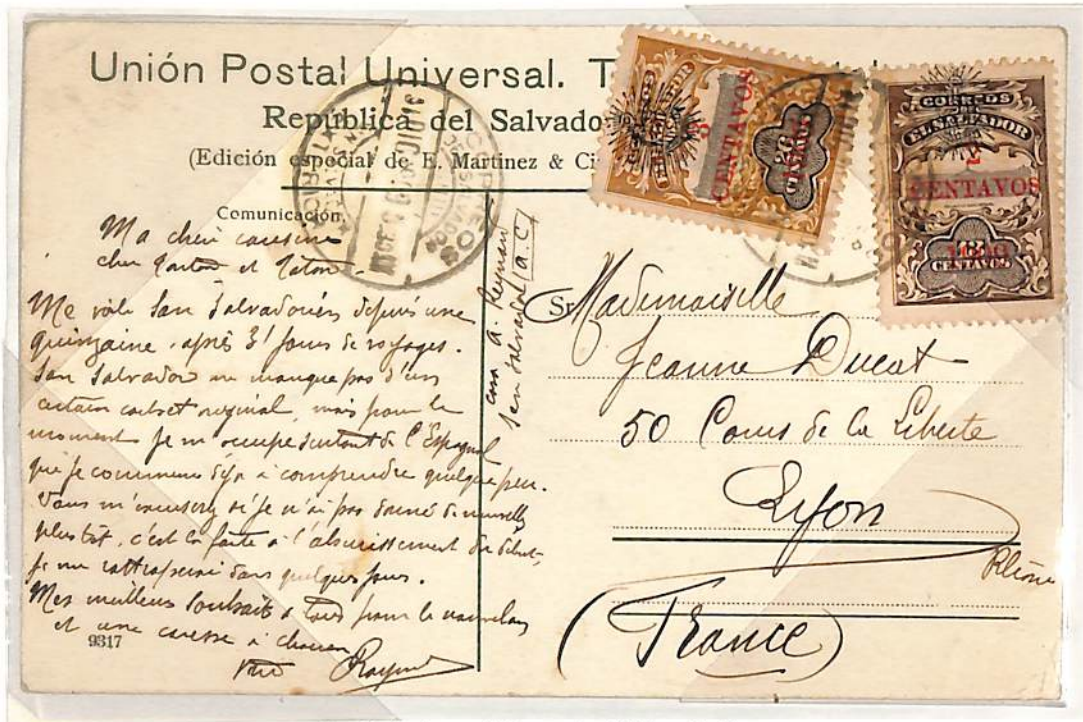 Unión Postal Universal. T
República del Salvado
(Edición especial de E. Martinez & Ci
Comunicación.
Ma chère cousine
cher Gaston et
Me voilà San Salvadorien depuis une
quinzaine, après 31 jours de voyages.
San Salvador ne manque pas d'un
certain cachet original, mais pour le
moment je m'occupe surtout de l'Espagnol
que je commence déjà à comprendre quelque peu.
Vous m'excuserez si je n'ai pas donné de nouvelles
plus tôt, c'est la faute à l'abrutissement du début,
je me rattraperai dans quelques jours.
Mes meilleurs souhaits à tous pour le nouvel an
et une caresse à chacun
Votre
9317
casa A.
San Salvador (a C)
Sr.
Mademoiselle
Jeanne Ducat
50 Cours de la Liberté
Lyon
Rhône
(France)
CORREOS
SALVADOR
3
CENTAVOS
26
CENTAVOS
CORREOS
DEL
EL SALVADOR
CENTAVOS
CENTAVOS